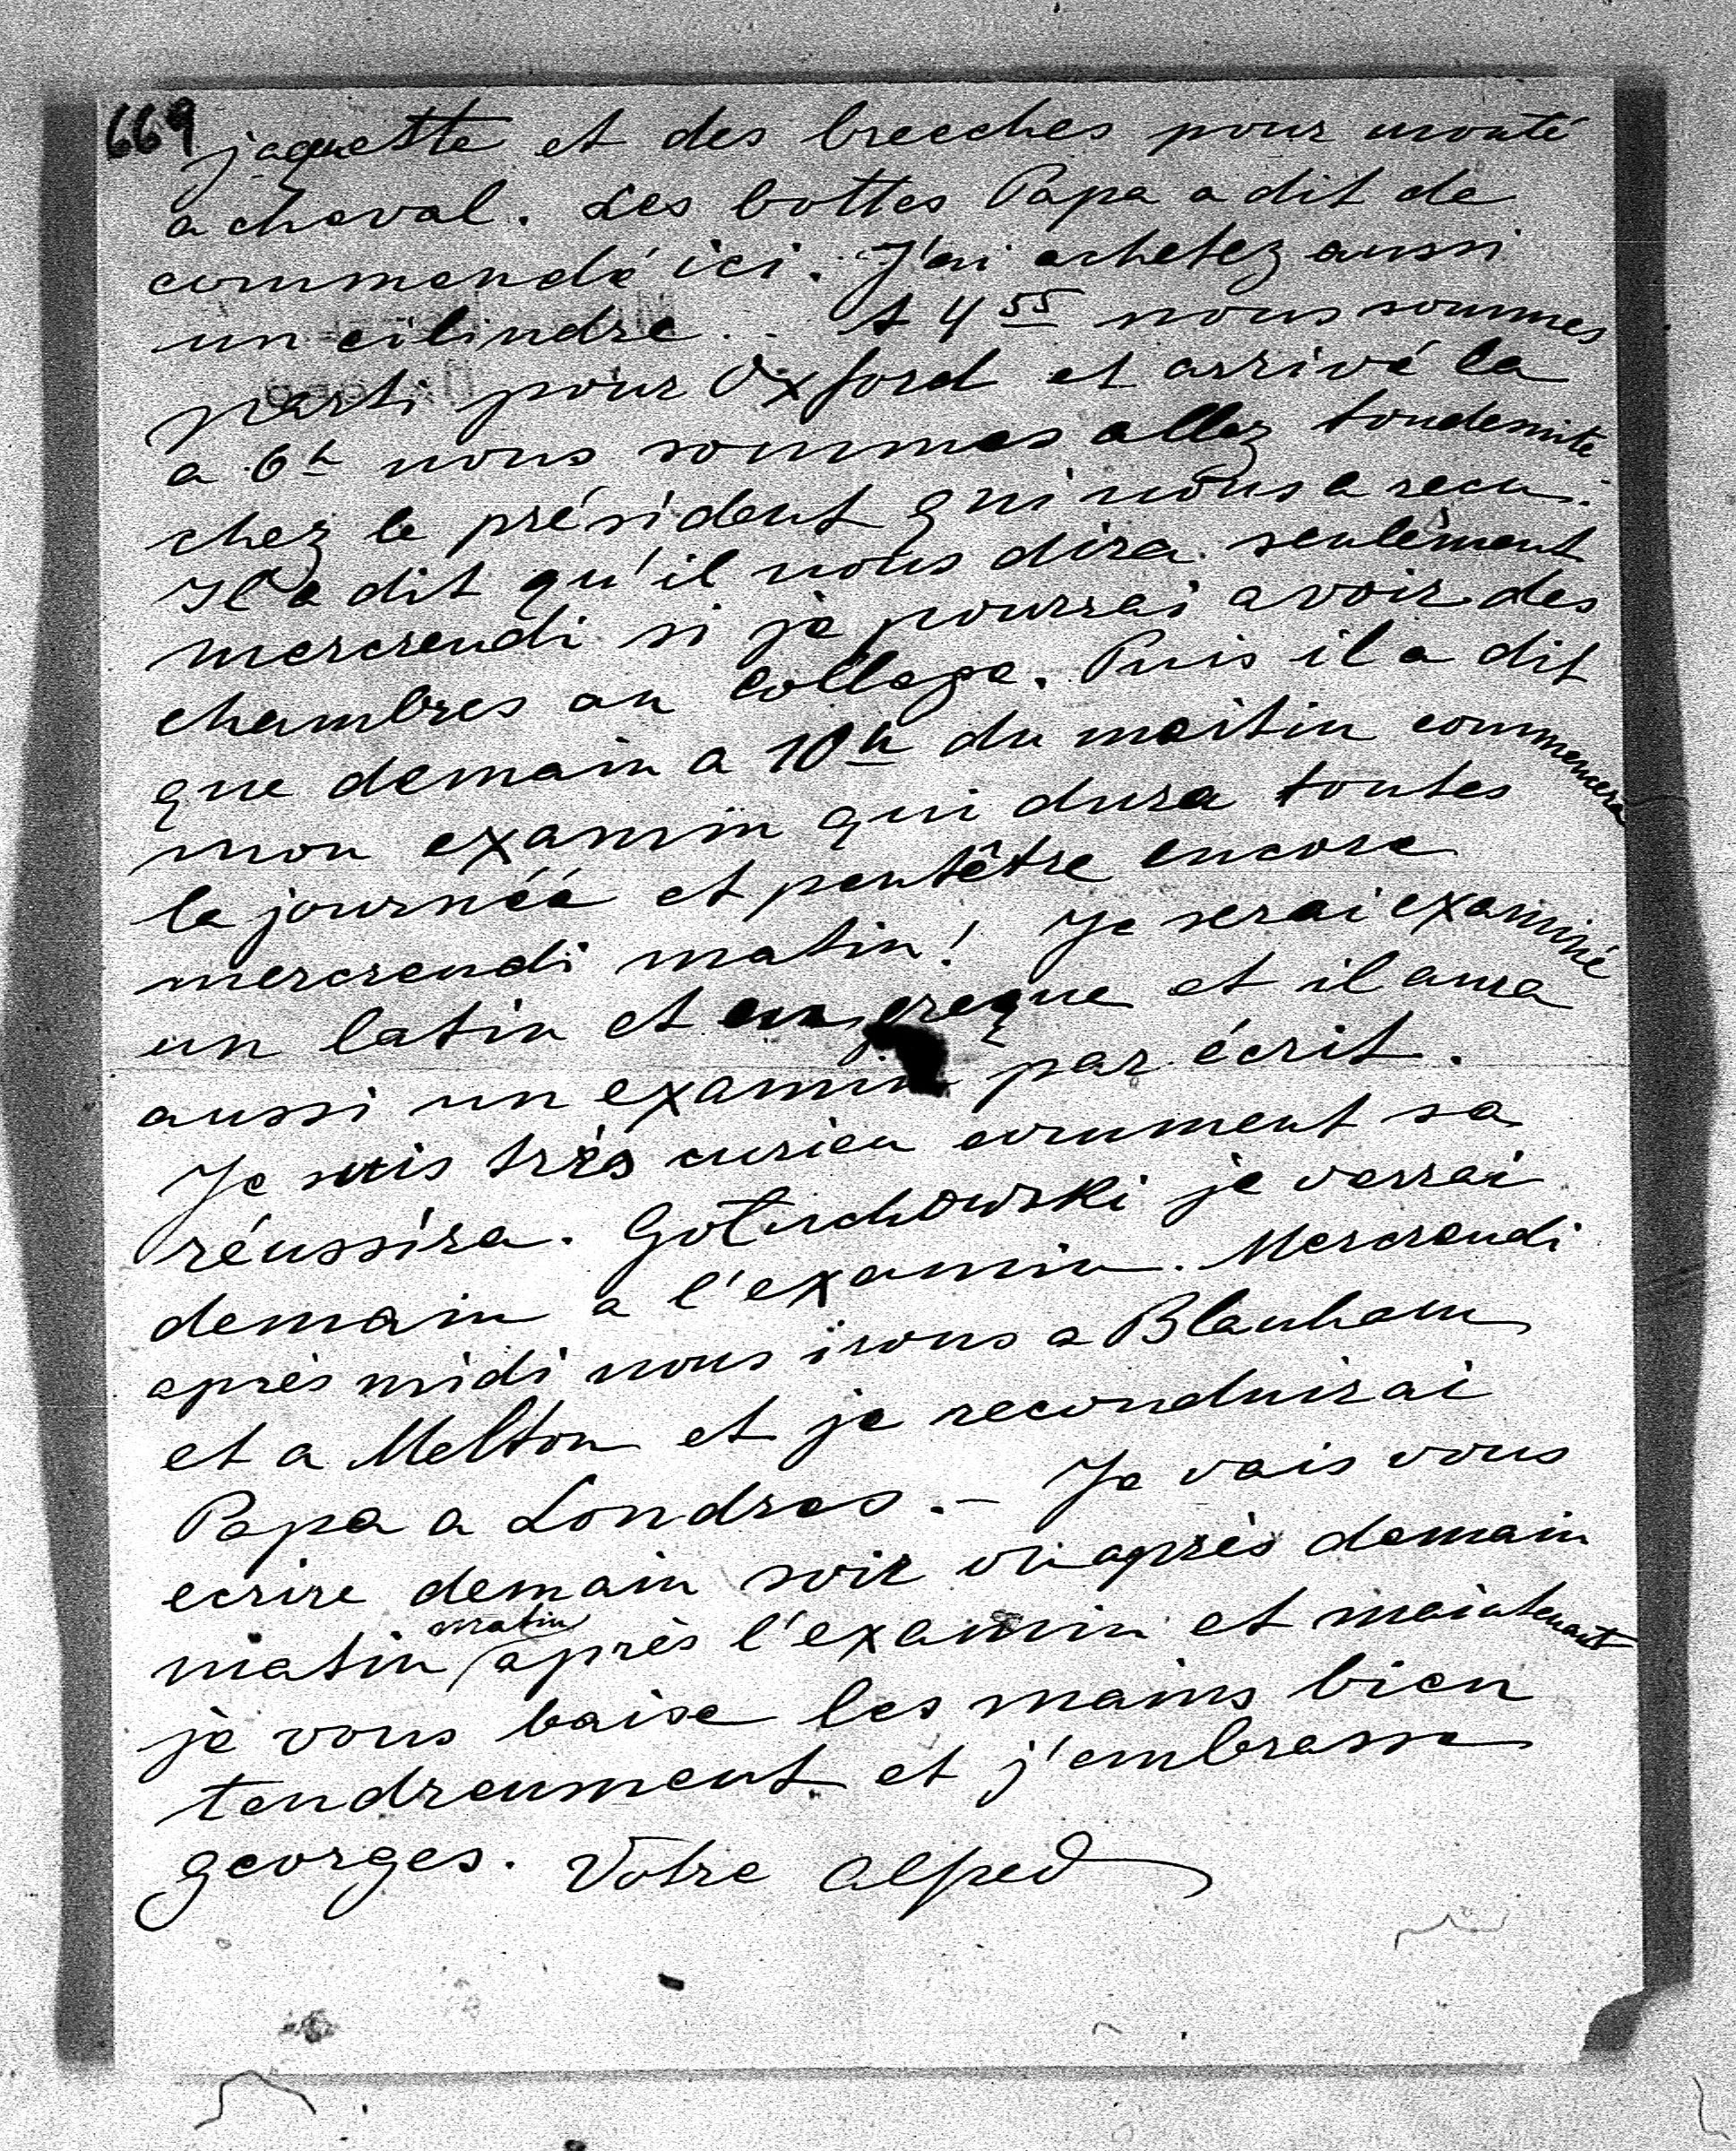 669
jaquette et des breeches pour monté
a cheval. Les bottes Papa a dit de
commendé ici. J'ai achetez aussi
un cilindre. A 4 55 nous sommes
parti pour Oxford et arrivé la
a 6h nous sommes allez toudesuite
chez le président qui nous a recu.
Il a dit qu'il nous dira seulement
mercrendi si je pourrai avoir des
chambres au collége. Puis il a dit
que demain a 10h du maitin commencera
mon examin qui dura toutes
la journéé et peutêtre encore
mercrendi matin! Je serai examiné
un latin et en greque et il aura
aussi un examin par écrit.
Je suis très curieu comment sa
réussira. Gołuchowski je verrai
demain a l'examin. Mercrendi
après midi nous irons a Blanham
et a Melton et je reconduirai
Papa a Londres.— Je vais vous
ecrire demain soir ou après demain
matin matin après l'examin et maintenant
je vous baise les mains bien
tendreument et j'embrasse
georges. Votre Alfred